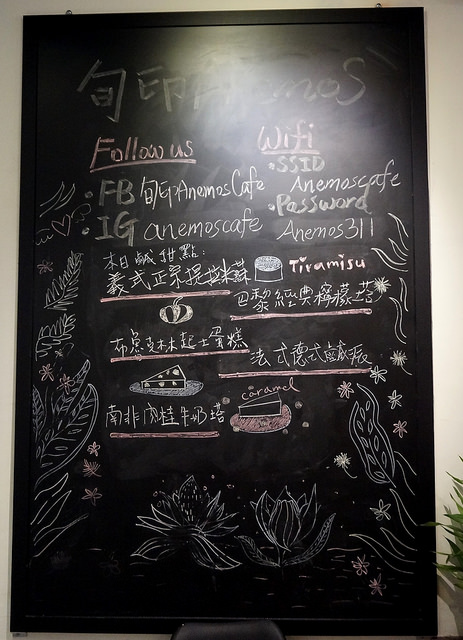 旬印 AnemoS
Follow us
Wifi
• SSID
Anemoscafe
• Password
Anemos311
• FB 旬印AnemosCafe
• IG anemoscafe
本日鹹甜點:
義式正宗提拉米蘇 Tiramisu
巴黎經典檸檬塔
布魯克林起士蛋糕
法式德式鹹派
caramel
南非肉桂牛奶塔